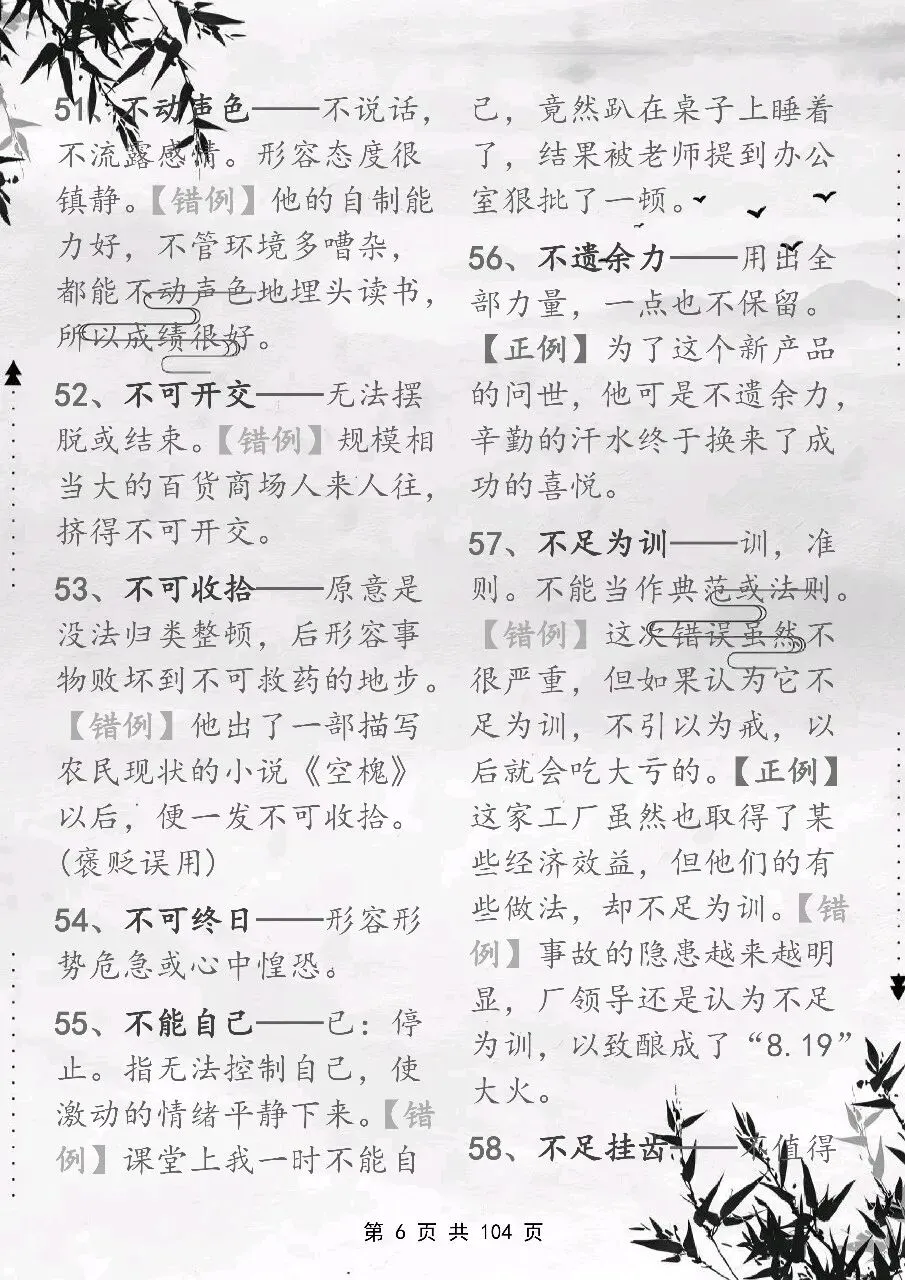 51、不动声色——不说话，
不流露感情。形容态度很
镇静。【错例】他的自制能
力好，不管环境多嘈杂，
都能不动声色地埋头读书，
所以成绩很好。
52、不可开交——无法摆
脱或结束。【错例】规模相
当大的百货商场人来人往，
挤得不可开交。
53、不可收拾——原意是
没法归类整顿，后形容事
物败坏到不可救药的地步。
【错例】他出了一部描写
农民现状的小说《空槐》
以后，便一发不可收拾。
(褒贬误用)
54、不可终日——形容形
势危急或心中惶恐。
55、不能自己——已：停
止。指无法控制自己，使
激动的情绪平静下来。【错
例】课堂上我一时不能自
己，竟然趴在桌子上睡着
了，结果被老师提到办公
室狠批了一顿。
56、不遗余力——用出全
部力量，一点也不保留。
【正例】为了这个新产品
的问世，他可是不遗余力，
辛勤的汗水终于换来了成
功的喜悦。
57、不足为训——训，准
则。不能当作典范或法则。
【错例】这次错误虽然不
很严重，但如果认为它不
足为训，不引以为戒，以
后就会吃大亏的。【正例】
这家工厂虽然也取得了某
些经济效益，但他们的有
些做法，却不足为训。【错
例】事故的隐患越来越明
显，厂领导还是认为不足
为训，以致酿成了“8.19”
大火。
58、不足挂齿——不值得
第 6 页 共 104 页